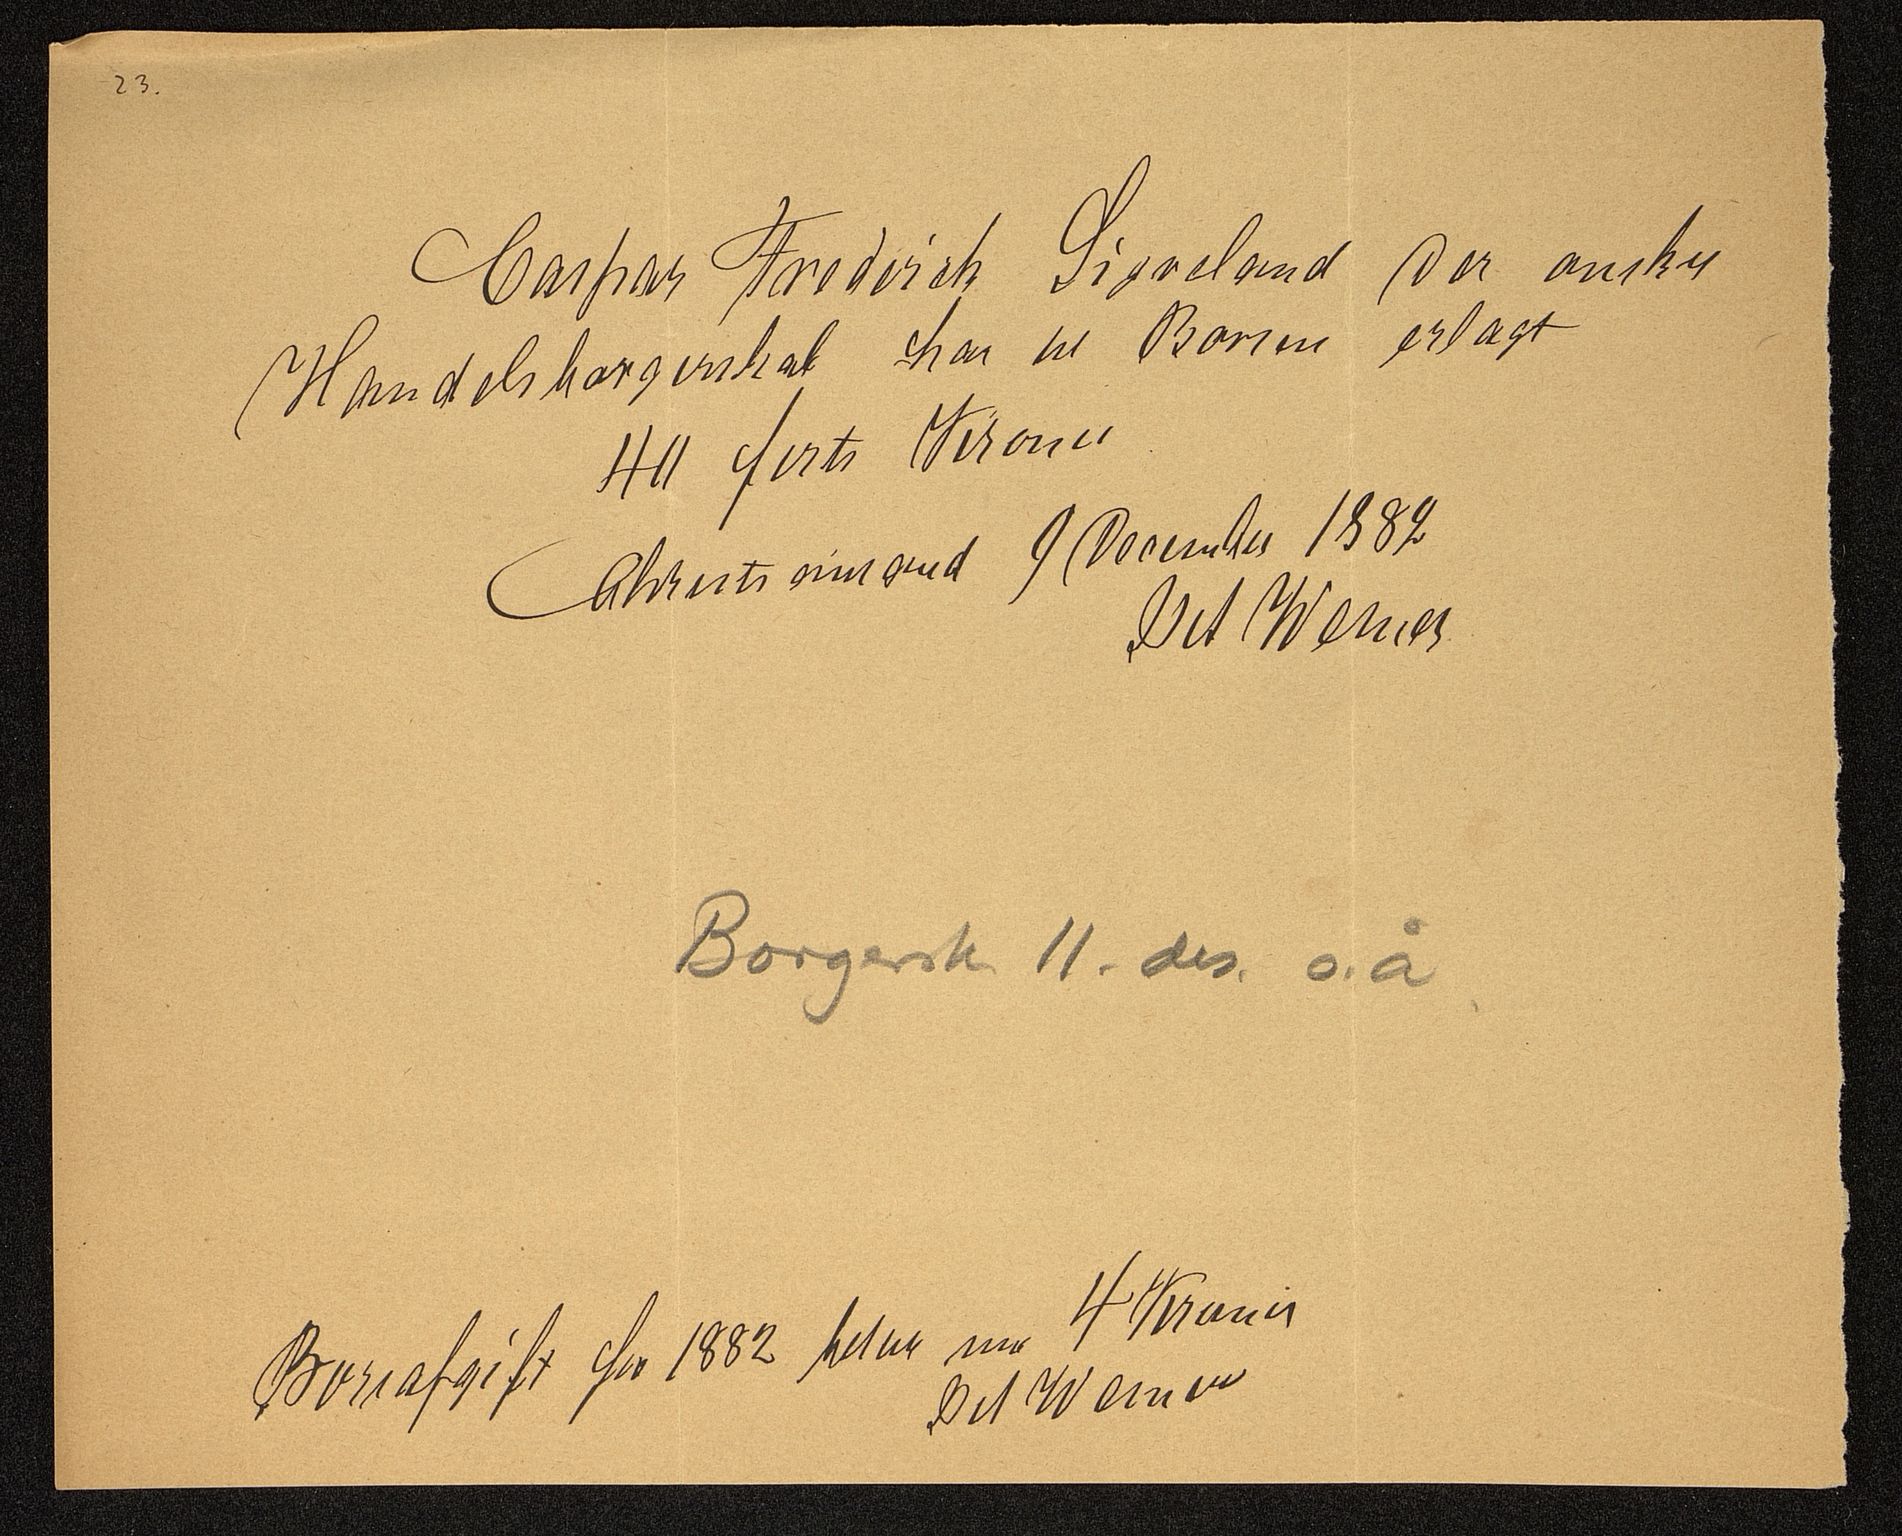 23.
Caspar Frederick Sigveland der ønsker
Handelsborgerskab har til Børsen erlagt
40 førti Kroner
Christianssand 9 December 1882
Det Werner
Borgersk. 11. des. s.å.
Børsafgift for 1882 betalt med 4 Kroner
Det Werner